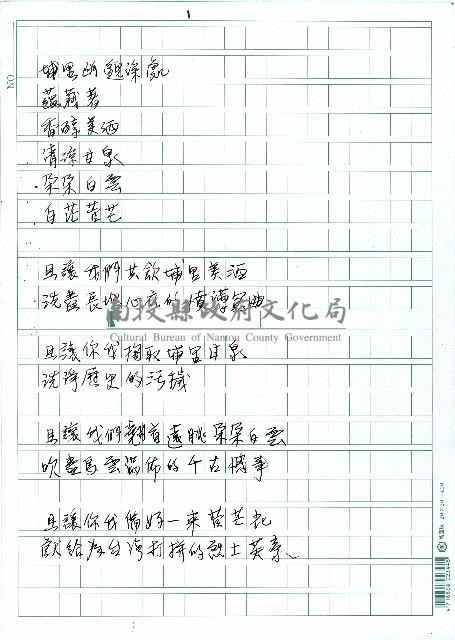 1
埔里的山深處
蘊藏著
香醇美酒
清涼甘泉
朵朵白雲
白茫菅芒
且讓我們共飲埔里美酒
洗盡長埋心底的憤懣冤曲
南投縣政府文化局
Cultural Bureau of Nantou County Government
且讓你我掬取埔里甘泉
洗淨歷史的污穢
且讓我們翹首遠眺朵朵白雲
吹盡烏雲滿佈的千古恨事
且讓你我備好一束菅芒花
獻給為台灣打拼的烈士英豪
NO